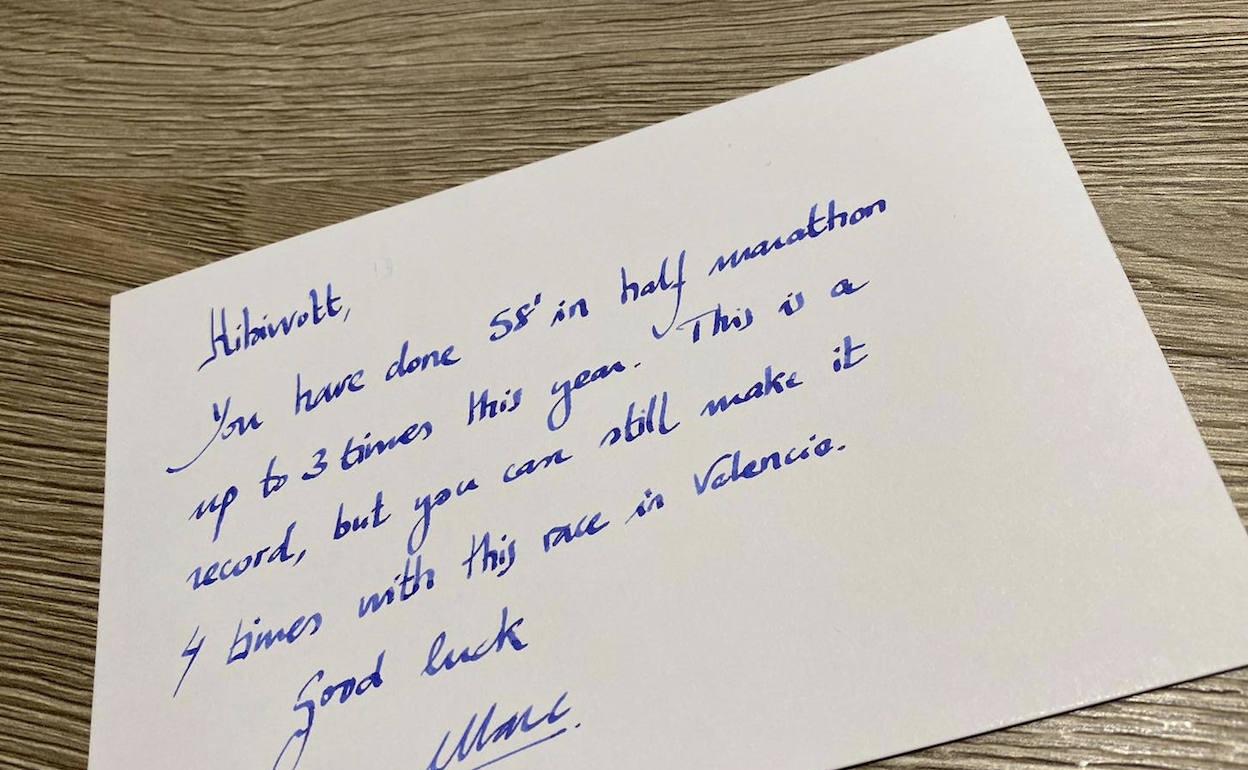 Kibiwott,
You have done 58' in half marathon
up to 3 times this year. This is a
record, but you can still make it
4 times with this race in Valencia.
Good luck
Marc.